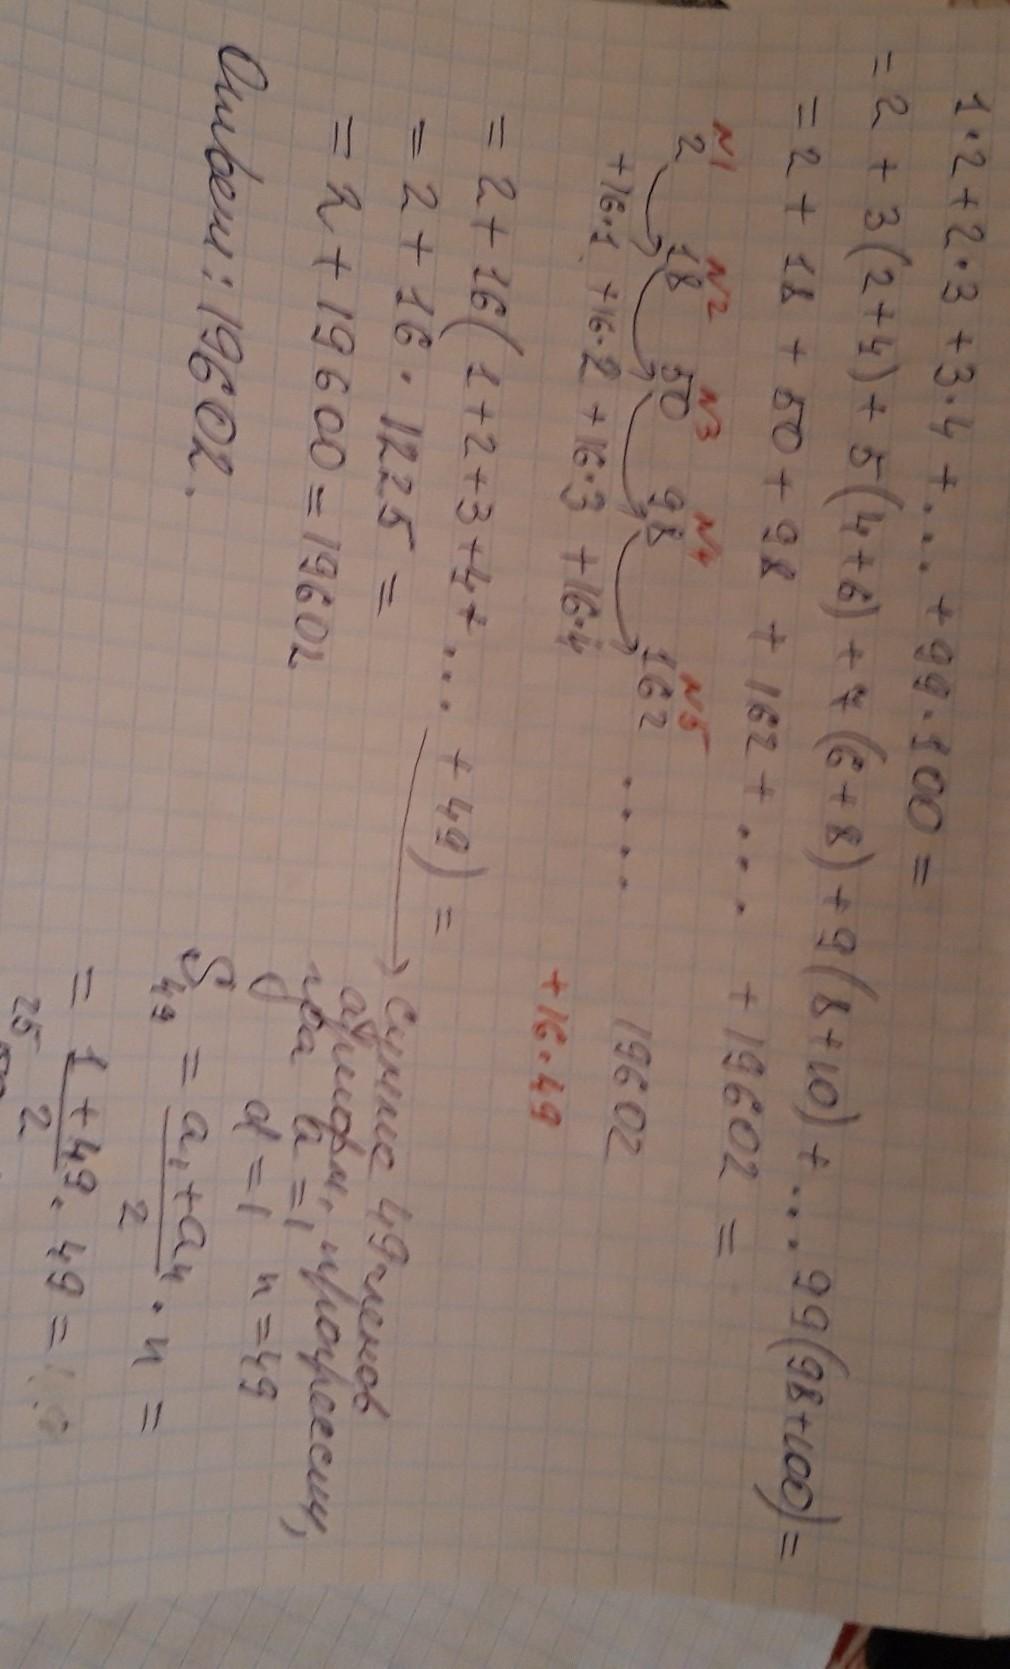 1·2+2·3+3·4+...+99·100=
=2+3(2+4)+5(4+6)+7(6+8)+9(8+10)+...99(98+100)=
=2+18+50+98+162+....+19602=
N1 N2 N3 N4 N5
2 18 50 98 162 .... 19602
+16·1 +16·2 +16·3 +16·4 +16·49
=2+16(1+2+3+4+...+49)=
=2+16·1225=
=2+19600=19602
Ответ: 19602.
49 членов
арифм. прогрессии,
a=1
d=1 n=49
S49 = a1+an/2 · n =
= 1+49/2 · 49 =
25